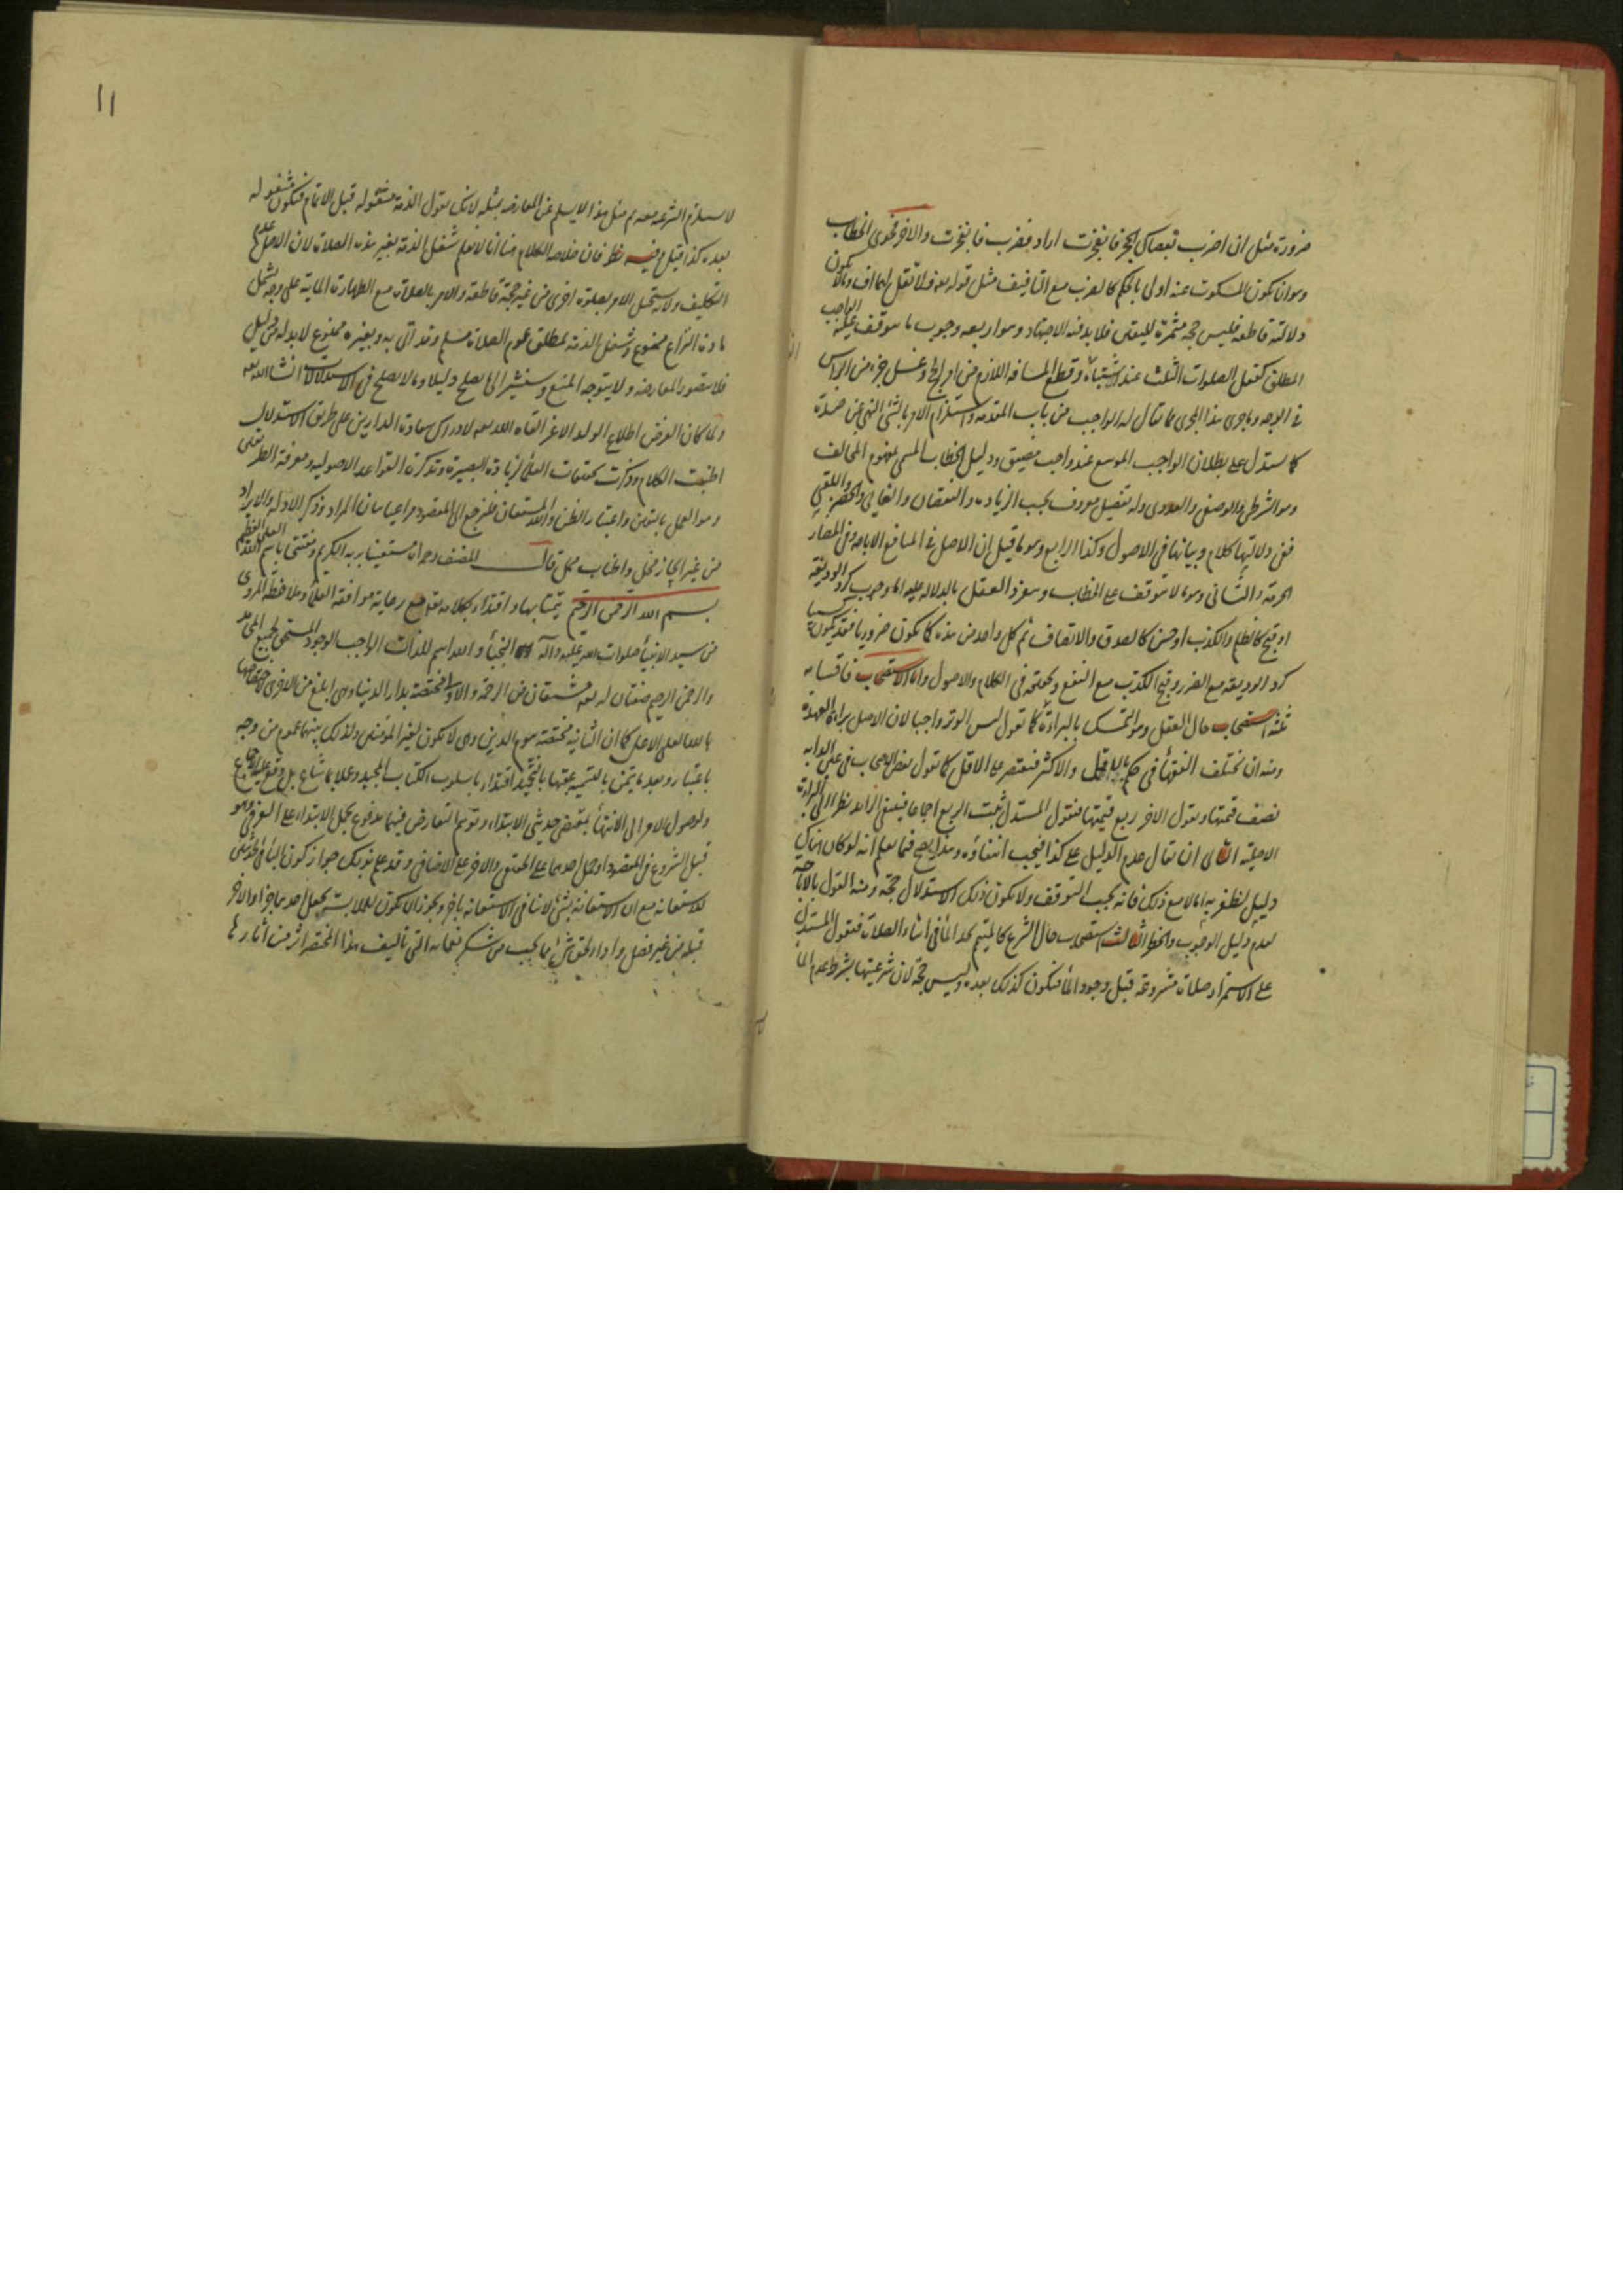 ضرورة مثل ان اضرب بعصاك الحجر فانفجرت اراد فضرب فانفجرت والاخر فحوى الخطاب
وهو ان يكون المسكوت عنه اولى بالحكم كالضرب مع التافيف مثل قوله تعه فلا تقل لهما اف وما لا يكون
دلالته قاطعه فليس حجه مثمرة لليقين فلا بد فيه الاجتهاد وهو اربعه وجوب ما يتوقف عليه الواجب
المطلق كفعل الصلوات الثلث عند اشتباه وقطع المسافه اللازم من امر الحج وغسل جزء من الراس
في الوجه وما جرى هذا المجرى مما يقال له الواجب من باب المقدمه واستلزام الامر بالشئ النهي عن ضده
كما يستدل على بطلان الواجب الموسع عند واجب مضيق ودليل الخطاب المسمى بمفهوم المخالف
وهو الشرطى والوصفى والعددى وله تفصيل معروف بحسب الزيادة والنقصان والغائى والحصرى واللقبى
ففى دلالتها كلام وبيانها في الاصول وكذا الرابع وهو ما قيل ان الاصل في المنافع الاباحه وفي المضار
الحرمة والثانى وهو ما لا يتوقف على الخطاب وينفرد العقل بالدلاله عليه اما وجوب كرد الوديعه
او قبح كالظلم والكذب او حسن كالصدق والانصاف ثم كل واحد من هذه كما يكون ضروريا فقد يكون كسبيا
كرد الوديعه مع الضرر وقبح الكذب مع النفع وتحقيقه فى الكلام والاصول واما الاستصحاب فاقسامه
ثلثه استصحاب حال العقل وهو التمسك بالبراءة كما تقول ليس الوتر واجبا لان الاصل براءة العهدة
ومنه ان تختلف الفقهاء في حكم بالاقل والاكثر فيقتصر على الاقل كما تقول بعض الاصحاب في عين الدابه
نصف قيمتها ويقول الاخر ربع قيمتها فيقول المستدل ثبت الربع اجماعا فينفى الزائد نظرا الى البراءة
الاصلية الثانى ان يقال عدم الدليل على كذا فيجب انتفاؤه وهذا يصح فيما يعلم انه لو كان هناك
دليل لظفر به اما لا مع ذلك فانه يجب التوقف ولا يكون ذلك الاستدلال حجة ومنه القول بالاباحة
لعدم دليل الوجوب والحظر الثالث استصحاب حال الشرع كالمتيمم يجد الماء في اثناء الصلاة فيقول المستدل
على الاستمرار صلاة مشروعة قبل وجود الماء فيكون كذلك بعده وليس حجة لان شرعيتها بشرط عدم الماء
١١
لا يستلزم الشرعية معه ثم مثل هذا لا يسلم عن المعارضه بمثله لانك تقول الذمة مشغوله قبل الاتمام فتكون مشغوله
بعده كذا قيل وفيه نظر فان خلاصه الكلام هنا انا لا نعلم شغل الذمة بغير هذه الصلاة لان الاصل عدم
التكليف ولانه يستحيل الامر بصلوة اخرى من غير حجة قاطعة والامر بالصلاة مع الطهارة المائيه على وجه يشمل
مادة النزاع ممنوع وشغل الذمة بمطلق عموم الصلاة مسلم وقد اتى به وبغيره ممنوع لا بد له من دليل
فلا يتصور المعارضه ولا يتوجه المنع وسنشير الى ما يصلح دليلا وما لا يصلح في الاستدلالات انشاء الله تعه
ولما كان الغرض اطلاع الولد الاعز ابقاه الله تعه لادراك سعادة الدارين على طريق الاستدلال
اطنبت الكلام وذكرت تحقيقات العلماء لزيادة البصيرة وتذكرة القواعد الاصوليه ومعرفة الطريقى
وهو العمل باليقين واعتبار الظن والله المستعان فلنرجع الى المقصود مراعيا بيان المراد وذكر الادله والايراد
من غير ايجاز مخل واطناب ممل قال المصنف رحمه الله مستعينا بربه الكريم ومفتتحا باسم الله العلى العظيم
بسم الله الرحمن الرحيم تيمنا بها واقتداء بكلامه تعه مع رعاية موافقة العلماء وملاحظة المروى
من سيد الانبياء صلوات الله عليه وآله النجباء والله اسم للذات الواجب الوجود المستحق لجميع المحامد
والرحمن الرحيم صفتان له تعه مشتقان من الرحمة والاولى مختصة بدار الدنيا وهى ابلغ من الاخرى لاختصاصها
بالله تعالى الاصل كما ان الثانية مختصة بيوم الدين وهى لا تكون لغير المؤمنين ولذلك بينهما عموم من وجه
باعتبار وبعد ما تيمن بالتسمية عقبها بالتحميد اقتداء باسلوب الكتاب المجيد وعملا بما شاع بل وقع عليه الاجماع
ولوصول الامر الى الانتهاء بمقتضى حديثى الابتداء وتوهم التعارض فيهما مدفوع بحمل الابتداء على العرفى وهو
قبل الشروع في المقصود او بحمل احدهما على الحقيقى والاخر على الاضافى وقد علم بذلك جواز كون الباء في الحديثين
للاستعانه مع ان الاستعانة بشئ لا ينافى الاستعانه باخر ويجوز ان يكون للملابسة بجعل احدهما جزأ والاخر
قبله من غير فصل واداء لحق شئ مما يجب من شكر نعمائه التى تأليف هذا المختصر اثر من اثارها